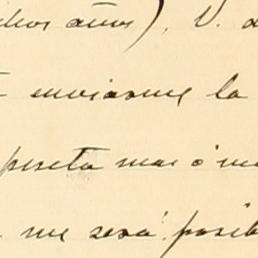 años), V. d
enviarme la
peseta mas ó m
me será posib